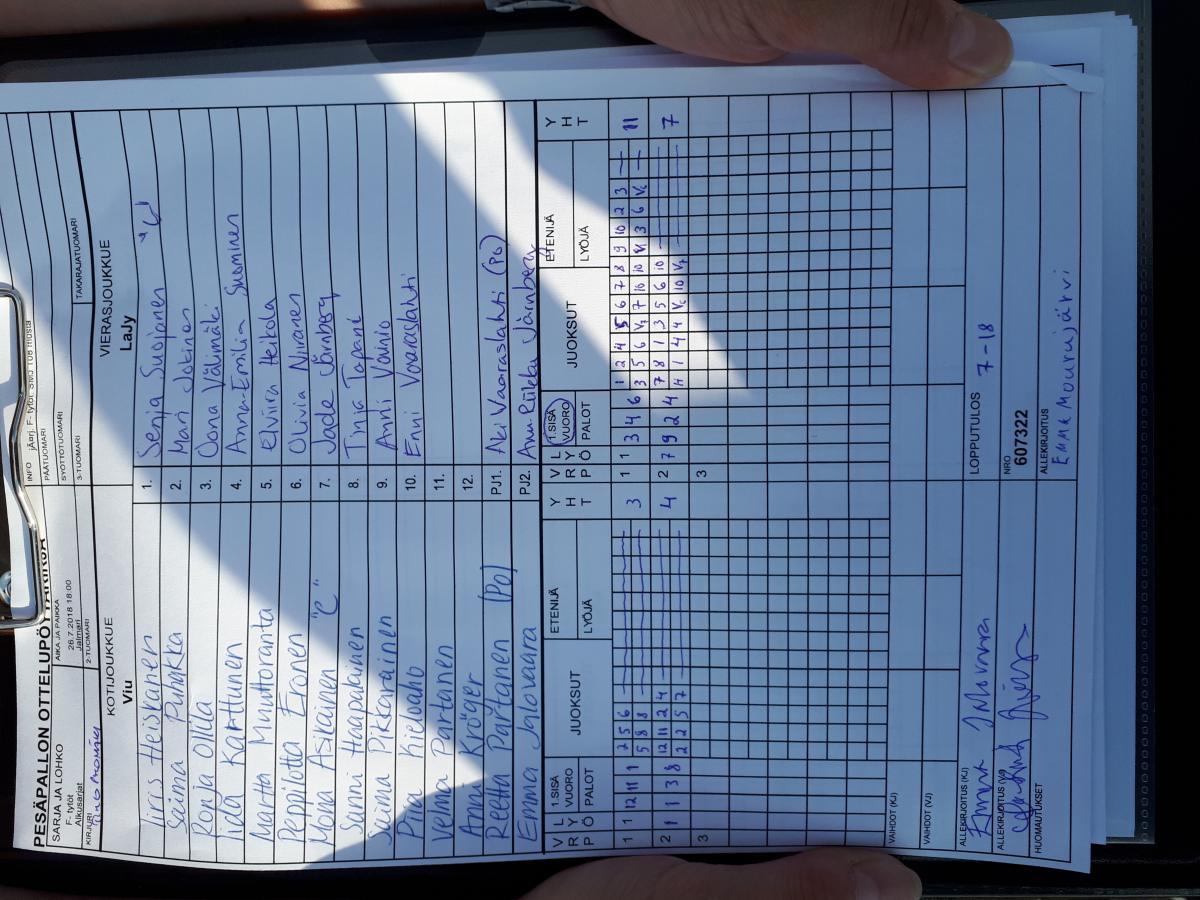 PESÄPALLON OTTELUPÖYTÄKIRJA
SARJA JA LOHKO
F- tytöt
Alkusarjat
AIKA JA PAIKKA
26.7.2018 18.00
Jalmari
INFO
PÄÄTUOMARI
SYÖTTÖTUOMARI
KIRJURI
2-TUOMARI
3-TUOMARI
TAKARAJATUOMARI
KOTIJOUKKUE
VIERASJOUKKUE
Viu
LaJy
Iiris Heiskanen
1. Senja Suojanen "C"
Saima Punkka
2. Mari Jokinen
Ronja Ollila
3. Oona Välimäki
Iida Karttunen
4. Anna-Emilia Suominen
Martta Muuttoranta
5. Elviira Heikola
Peppilotta Eronen
6. Olivia Niiranen
Manna Asikainen "C"
7. Jade Järnberg
Sanni Haapalainen
8. Tinja Tapani
Seima Pikkarainen
9. Anni Vainio
Pina Kieloaho
10. Enni Vaaraslahti
Venna Partanen
11.
Anni Kröger
12.
Reetta Partanen (PO)
PJ1. Aki Vaaraslahti (PO)
Emma Jalovaara
PJ2. Anna-Riikka Järnberg
V R P L Y Ö 1.SISÄ VUORO PALOT JUOKSUT ETENIJÄ LYÖJÄ Y H T
V R P L Y Ö 1.SISÄ VUORO PALOT JUOKSUT ETENIJÄ LYÖJÄ Y H T
1 1 12 11 1 2 5 6 3
5 8 8
1 1 3 4 6 1 2 4 5 6 7 8 9 10 2 3 11
2 1 1 3 8 12 11 2 4 4
2 2 5 7
2 7 9 2 4 7 8 1 3 5 6 10 7
3
3
VAIHDOT (KJ)
VAIHDOT (VJ)
ALLEKIRJOITUS (KJ)
LOPPUTULOS
7-18
ALLEKIRJOITUS (VJ)
NRO
607322
HUOMAUTUKSET
ALLEKIRJOITUS
EMMA Mourujärvi